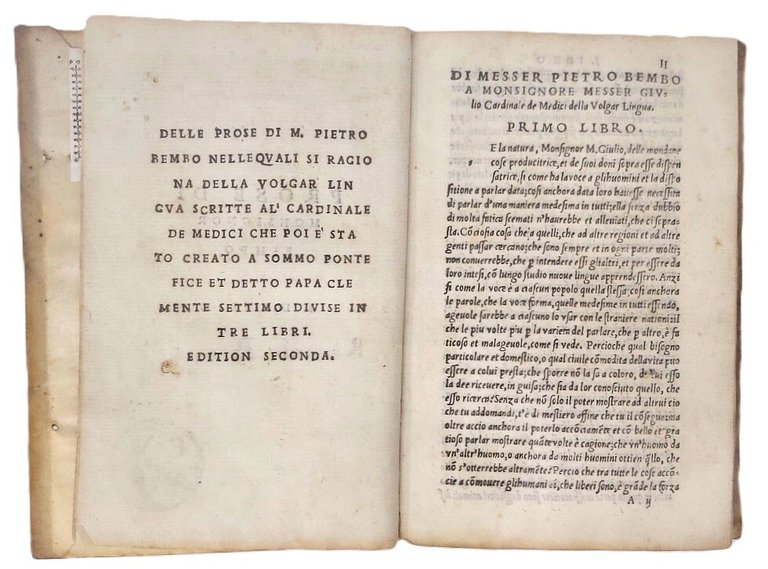 DELLE PROSE DI M. PIETRO
BEMBO NELLEQVALI SI RAGIO
NA DELLA VOLGAR LIN
GVA SCRITTE AL' CARDINALE
DE MEDICI CHE POI E' STA
TO CREATO A SOMMO PONTE
FICE ET DETTO PAPA CLE
MENTE SETTIMO DIVISE IN
TRE LIBRI.
EDITION SECONDA.
II
DI MESSER PIETRO BEMBO
A MONSIGNORE MESSER GIV⸗
lio Cardinale de Medici della Volgar Lingua.
PRIMO LIBRO.
E la natura, Monſignor M. Giulio, delle mondane
coſe producitrice, et de ſuoi doni ſopra eſſe diſpen
ſatrice, ſi come ha la voce a glihuomini et la diſpo
ſitione a parlar data; coſi anchora data loro haueſſe neceſſita
di parlar d'una maniera medeſima in tutti; ella ſenza dubbio
di molta fatica ſcemati n'haurebbe et alleuiati, che ci ſopra⸗
ſta. Concioſia coſa che à quelli, che ad altre regioni et ad altre
genti paſſar cercano; che ſono ſempre et in ogni parte molti;
non conuerrebbe, che ꝑ intendere eſſi gliàltri, et per eſſere da
loro inteſi, cõ lungo ſtudio nuoue lingue apprendeſſero. Anzi
ſi come la voce è a ciaſcun popolo quella ſteſſa; coſi anchora
le parole, che la voce forma, quelle medeſime in tutti eſſendo,
ageuole ſarebbe a ciaſcuno lo vſar con le ſtraniere nationi: il
che le piu volte piu ꝑ la varieta del parlare, che ꝑ altro, è fa
ticoſo et malageuole, come ſi vede. Percioche qual biſogno
particolare et domeſtico, o qual ciuile cõmodita della vita puo
eſſere a colui preſta; che ſporre nõ la ſa a coloro, da cui eſſo
la dee riceuere, in guiſa; che ſia da lor conoſciuto quello, che
eſſo ricerca? Senza che nõ ſolo il poter moſtrare ad altrui cio
che tu addomandi, t'è di meſtiero affine che tu il cõſeguiſca
oltre accio anchora il poterlo acconciamẽte et cõ bello et gra
tioſo parlar moſtrare quãte volte è cagione; che vn'huomo da
vn'altr'huomo, o anchora da molti huomini ottien q̃llo, che
nõ s'otterrebbe altramẽte? Percio che tra tutte le coſe accõ⸗
cie a cõmouere glihumani ai, che liberi ſono, è grãde la forza
A ij